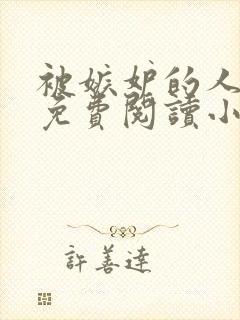 被嫉妒的人
免費閱讀小
許善達